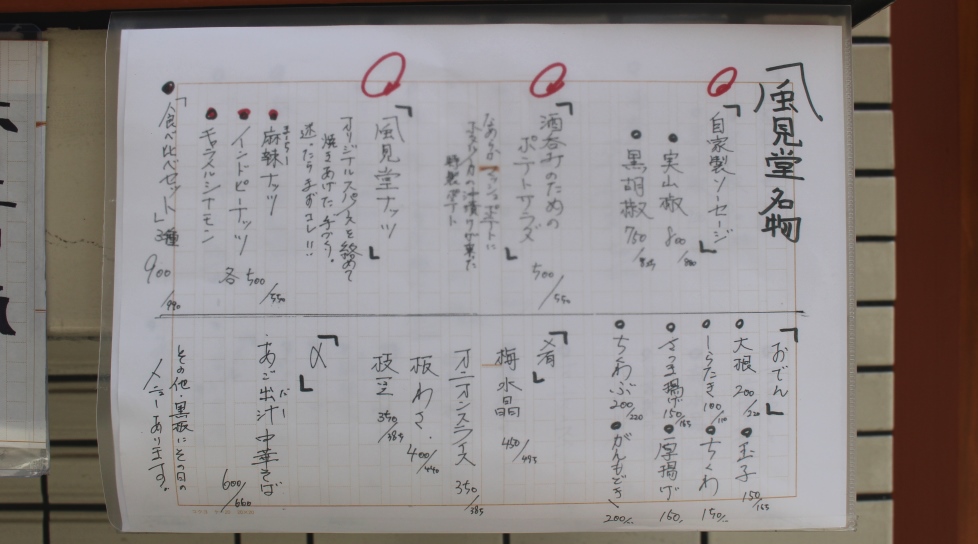 風見堂名物
「自家製ソーセージ」
実山椒 800/880
黒胡椒 750/825
「酒呑みのための
ポテトサラダ」 500/550
なめらかマッシュポテトに
特製
「風見堂ナッツ」
オリジナルスパイスを絡めて
焼きあげた手づくり。
迷ったらまずコレ!!
麻辣ナッツ
マーラー
インドピーナッツ 各500/550
キャラメルシナモン
「食べ比べセット」3種 900/990
「おでん」
大根 200/220
玉子 150/165
しらたき 100/110
ちくわ 150/
さつま揚げ 150/165
厚揚げ 150/
ちくわぶ 200/220
がんもどき 200/
「肴」
梅水晶 450/495
オニオンスライス 350/385
板わさ 400/440
枝豆 350/385
「〆」
あご出汁中華そば 600/660
だし
その他・黒板にその日の
メニューあります。